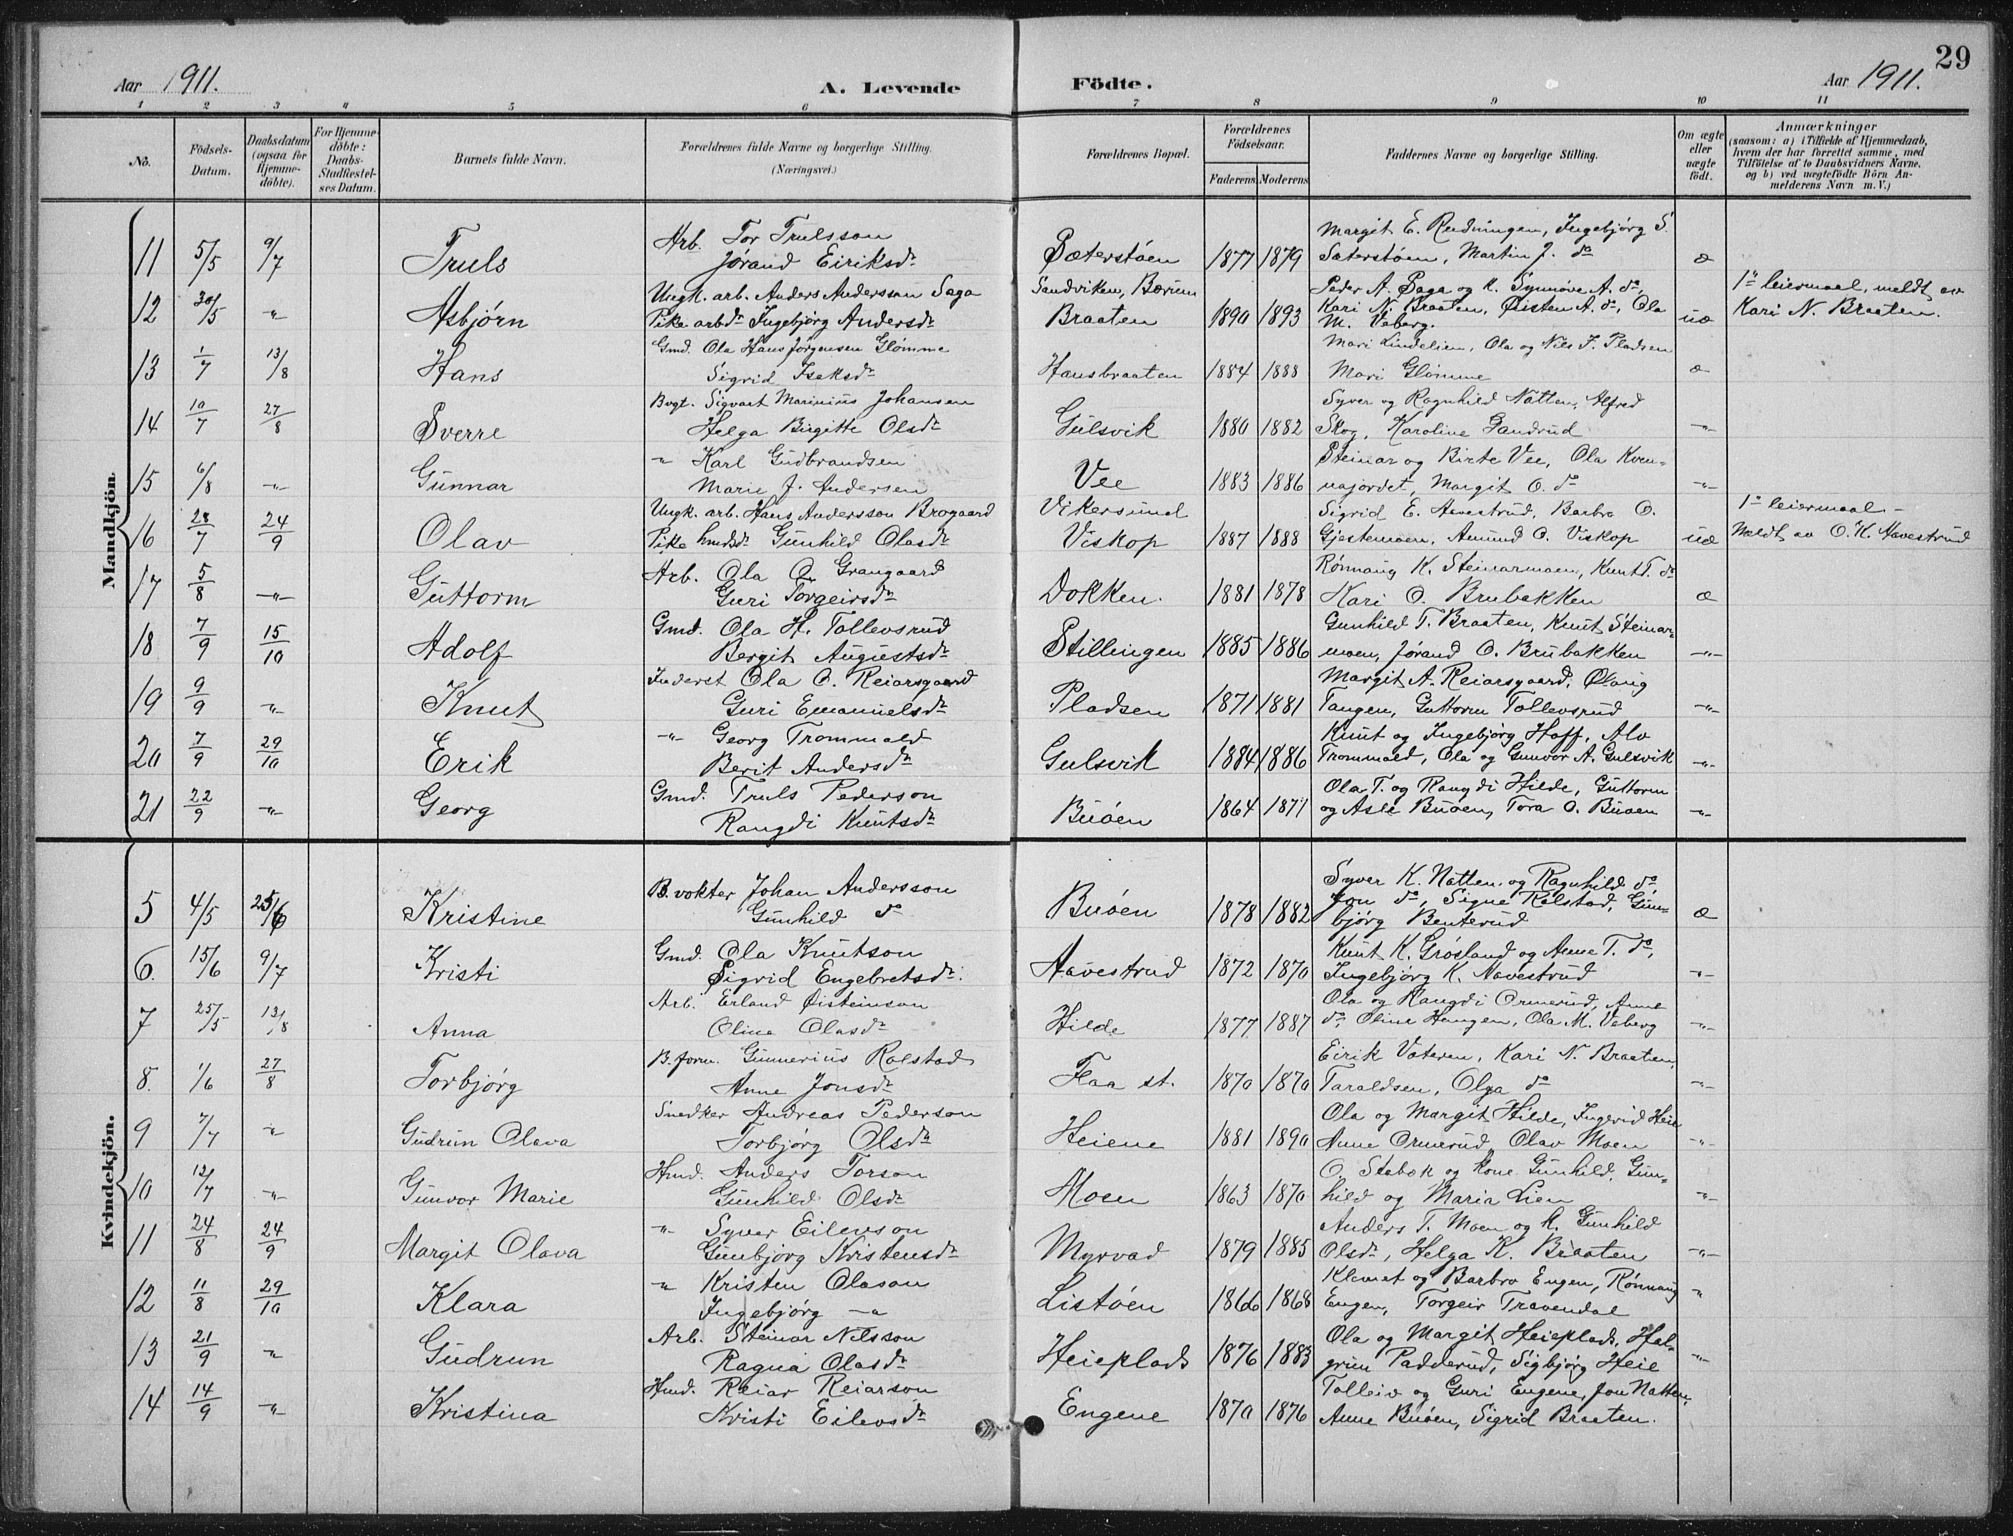 29
Aar 1911. A. Levende Födte. Aar 1911.
1 2 3 4 5 6 7 8 9 10 11
No.
Födsels-Datum.
Daabsdatum (ogsaa for Hjemme-döbte).
For Hjemme-döbte: Daabs-Stadfæstel-ses Datum.
Barnets fulde Navn.
Forældrenes fulde Navne og borgerlige Stilling. (Næringsvei.)
Forældrenes Bopæl.
Forældrenes Födselsaar.
Faderens Moderens
Faddernes Navne og borgerlige Stilling.
Om ægte eller uægte födt.
Anmærkninger
(saasom: a) i Tilfælde af Hjemmedaab, hvem der har forrettet samme, med Tilföielse af to Daabsvidners Navne, og b) ved uægtefödte Börn An-melderens Navn m. V.)
Mandkjön.
11 5/5 9/7 Truls Arb. Tor Trulsson
Jørand Eiriksdr Sæterstøen 1877 1879 Margit E. Rudningen, Ingebjørg S.
Sæterstøen, Martin J. do æ
12 30/5 -"- Asbjørn Ungk. arb. Anders Andersson Saga
Pike arbdr Ingebjørg Andersdr Sandviken, Bærum
Braaten 1890 1893 Peder A. Saga og K. Synnøve A. do,
Kari N. Braaten, Øisten A. do, Ola
M. Veberg. uæ 1o leiermaal, meldt av
Kari N. Braaten.
13 1/7 13/8 Hans Gmd. Ola Hans Jørgensen Glømme
Sigrid Isaksdr Hansbraaten 1884 1888 Mari Lindelien, Ola og Nils J. Pladsen
Mari Glømme æ
14 10/7 27/8 Sverre Bvgt. Sigvart Marinius Johansen
Helga Birgitte Olsdr Gulsvik 1880 1882 Syver og Ragnhild Natten, Alfred
Skog, Karoline Sandrud -"-
15 6/8 -"- Gunnar " Karl Gudbrandsen
Marie J. Andersen Vee 1883 1886 Steinar og Birte Vee, Ola Kven-
najordet, Margit O. do -"-
16 28/7 24/9 Olav Ungk. arb. Hans Andersson Brogaard
Pike hmdsdr Gunhild Olasdr Vikersund
Viskop 1887 1888 Sigrid E. Aavestrud, Barbro O.
Gjestemoen, Amund O. Viskop uæ 1o leiermaal -
Meldt av O. K. Aavestrud
17 5/8 -"- Guttorm Arb. Ola O. Grangaard
Guri Torgeirsdr Dokken. 1881 1878 Rønnaug K. Steinarmoen, Knut T. do
Kari O. Brubakken æ
18 7/9 15/10 Adolf Gmd. Ola H. Tollevsrud
Bergit Augustsdr Stillingen 1885 1886 Gunhild T. Braaten, Knut Steinar-
moen, Jørand O. Brubakken -"-
19 9/9 -"- Knut Inderst Ola O. Reiarsgaard
Guri Emanuelsdr Pladsen 1871 1881 Margit A. Reiarsgaard, Olaug
Tangen, Guttorm Tollevsrud -"-
20 7/9 29/10 Erik -"- Georg Trommald
Berit Andersdr Gulsvik 1884 1886 Knut og Ingebjørg Hoff, Alv
Trommald, Ola og Gunvor A. Gulsvik -"-
21 22/9 -"- Georg Gmd. Truls Pederson
Rangdi Knutsdr Buøen 1864 1871 Ola T. og Rangdi Hilde, Guttorm
og Asle Buøen, Tora O. Buøen -"-
Kvindekjön.
5 4/5 25/6 Kristine B. vokter Johan Andersson
Gunhild do Buøen 1878 1882 Syver K. Natten og Ragnhild do
Jon do, Signe Rolstad, Gun-
bjørg Benterud æ
6. 15/6 9/7 Kristi Gmd. Ola Knutson
Sigrid Engebretsdr. Aavestrud 1872 1870 Knut K. Grøsland og Anne T. do,
Ingebjørg K. Aavestrud -"-
7 25/5 13/8 Anna Arb. Erland Øisteinson
Oline Olasdr Hilde 1877 1887 Ola og Rangdi Ormerud, Anne
do, Oline Haugen, Ola M. Veberg -"-
8. 1/6 27/8 Torbjørg B. form. Gunnerius Rolstad
Anne Jonsdr Flaa st. 1870 1870 Eirik Vateren, Kari N. Braaten,
Taraldsen, Olga do -"-
9 7/7 " Gudrun Olava Snedker Andreas Pederson
Torbjørg Olsdr Heiene 1881 1890 Ola og Margit Hilde, Ingerid Heie
Anne Ormerud Olav Moen -"-
10 12/7 -"- Gunvor Marie Hmd. Anders Torson
Gunhild Olsdr Moen 1863 1870 O. Stabæk og Kone Gunhild, Gun-
hild og Maria Lien -"-
11 24/8 24/9 Margit Olava " Syver Eilevson
Gunbjørg Kristensdr Myrvad 1879 1885 Anders T. Moen og K. Gunhild
Olsdr, Helga K. Braaten -"-
12 11/8 29/10 Klara " Kristen Olason
Ingebjørg -"- Listøen 1866 1868 Klemet og Barbro Engen, Rønnaug
Engen, Torgeir Travendal "
13 21/9 " Gudrun Arb. Steinar Nilsson
Ragna Olasdr Heieplads 1876 1883 Ola og Margit Heieplads, Hal-
grim Padderud, Sigbjørg Heie -"-
14 14/9 -"- Kristina Hmd. Reiar Reiarson
Kristi Eilevsdr Engene 1870 1876 Tolleiv og Guri Engene, Jon Natten,
Anne Buøen, Sigrid Braaten.